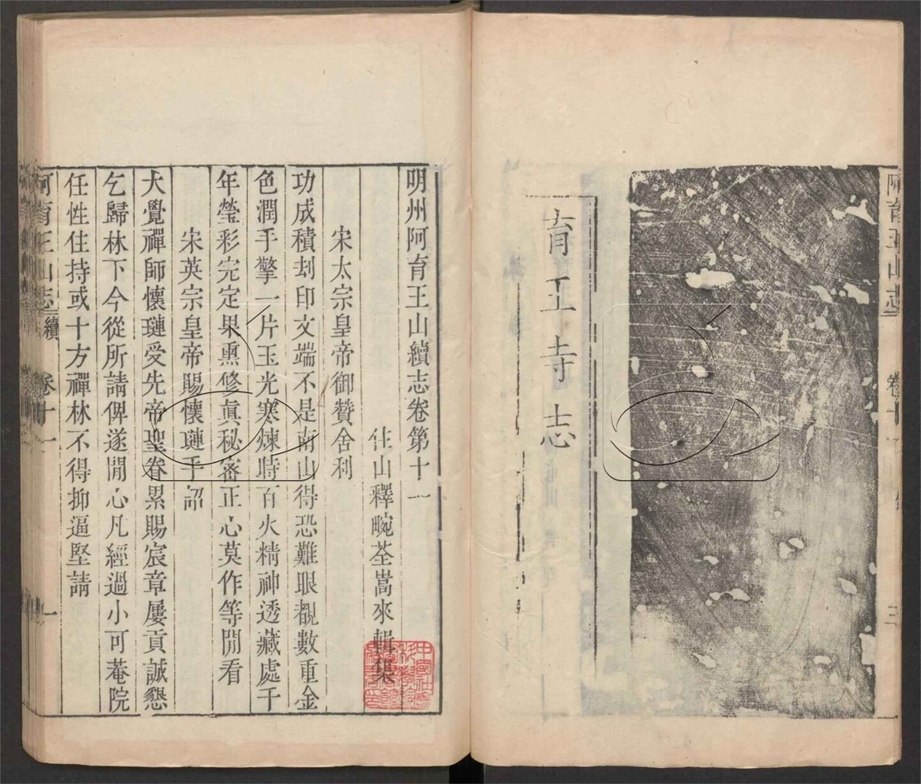 阿育王山志
卷十
三
育王寺志
明州阿育王山續志卷第十一
住山釋畹荃嵩來輯集
宋太宗皇帝御贊舍利
功成積刦印文端不是南山得恐難眼覩數重金
色潤手擎一片玉光寒煉時百火精神透藏處千
年瑩彩完定果熏修真秘密正心莫作等閒看
宋英宗皇帝賜懷璉手詔
大覺禪師懷璉受先帝聖眷累賜宸章屢貢誠懇
乞歸林下今從所請俾遂閒心凡經過小可菴院
任性住持或十方禪林不得抑逼堅請
阿育王山志
續
卷十一
一